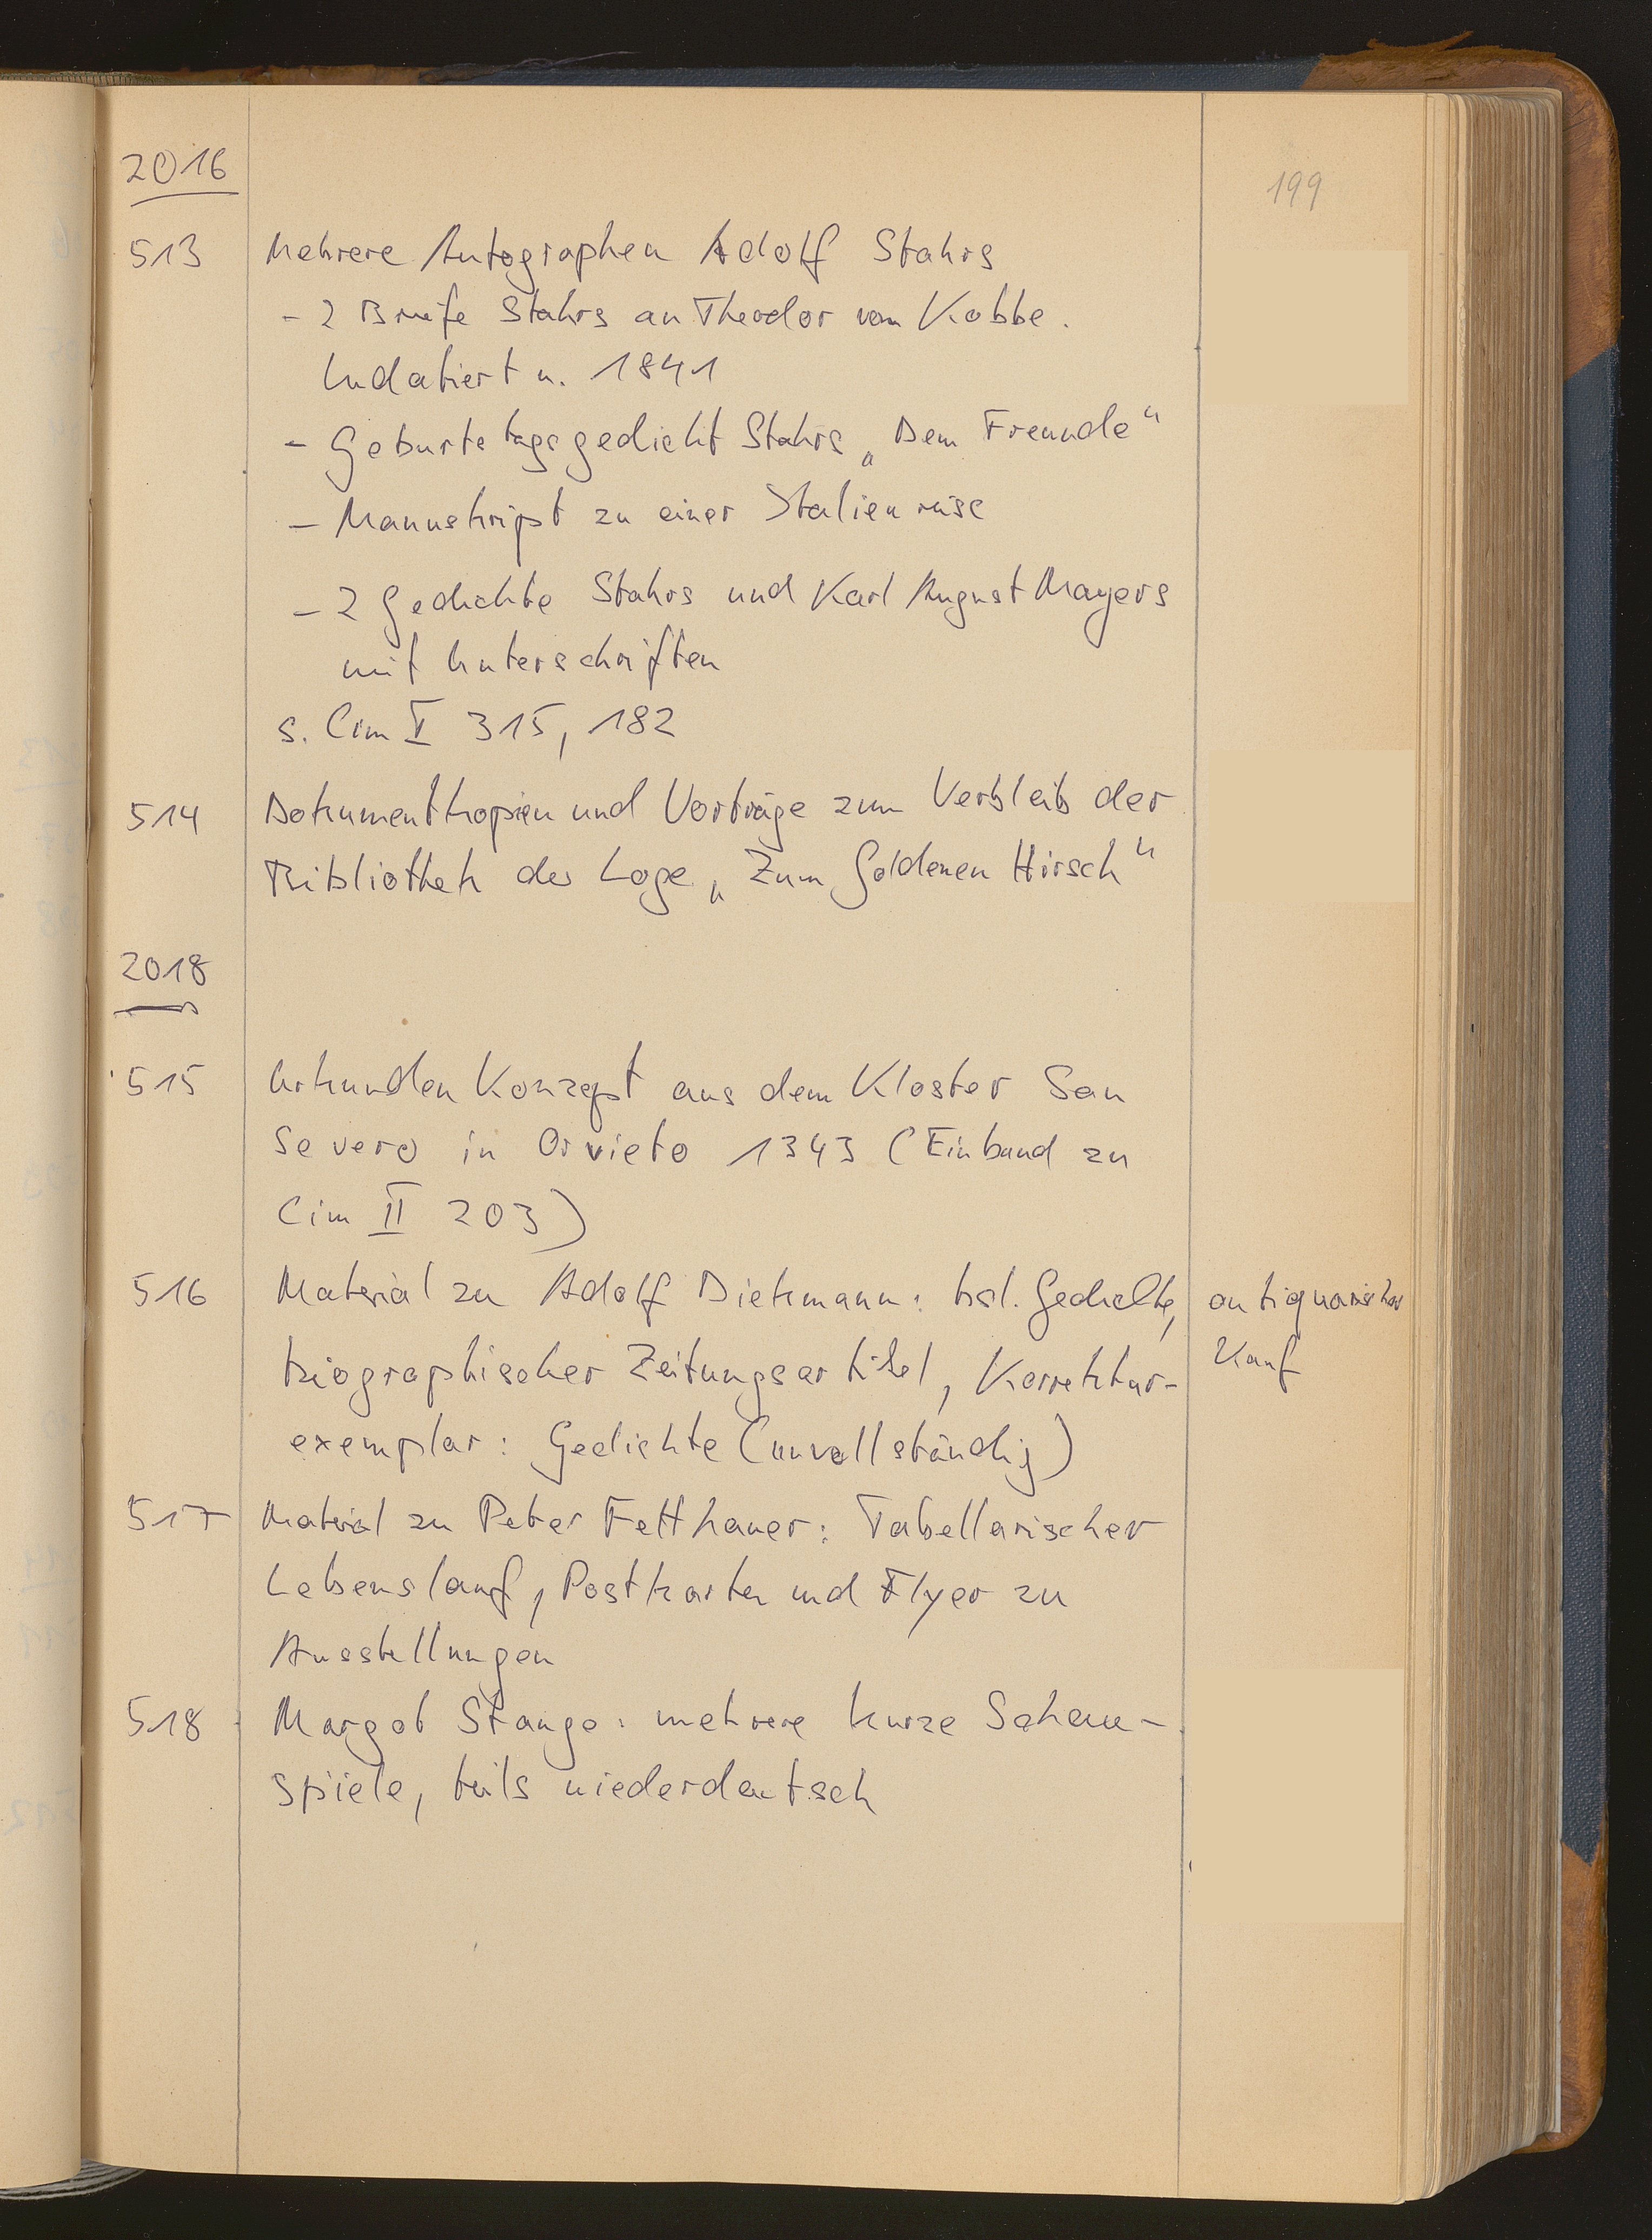 2016
199
513 Mehrere Autographen Adolf Stahrs
- 2 Briefe Stahrs an Theodor von Kobbe.
Undatiert u. 1841
- Geburtstagsgedicht Stahrs „Dem Freunde“
- Manuskript zu einer Italienreise
- 2 Gedichte Stahrs und Karl August Mayers
mit Unterschriften
s. Cim I 315, 182
514 Dokumentkopien und Vorträge zum Verbleib der
Bibliothek der Loge „Zum Goldenen Hirsch“
2018
515 Urkunden Konzept aus dem Kloster San
Severo in Orvieto 1343 (Einband zu
Cim II 203)
516 Material zu Adolf Diekmann: hsl. Gedichte, antiquarischer
biographischer Zeitungsartikel, Korrektur- Kauf
exemplar: Gedichte (unvollständig)
517 Material zu Peter Fetthauer: Tabellarischer
Lebenslauf, Postkarten und Flyer zu
Ausstellungen
518 Margot Stange: mehrere kurze Schau-
spiele, teils niederdeutsch